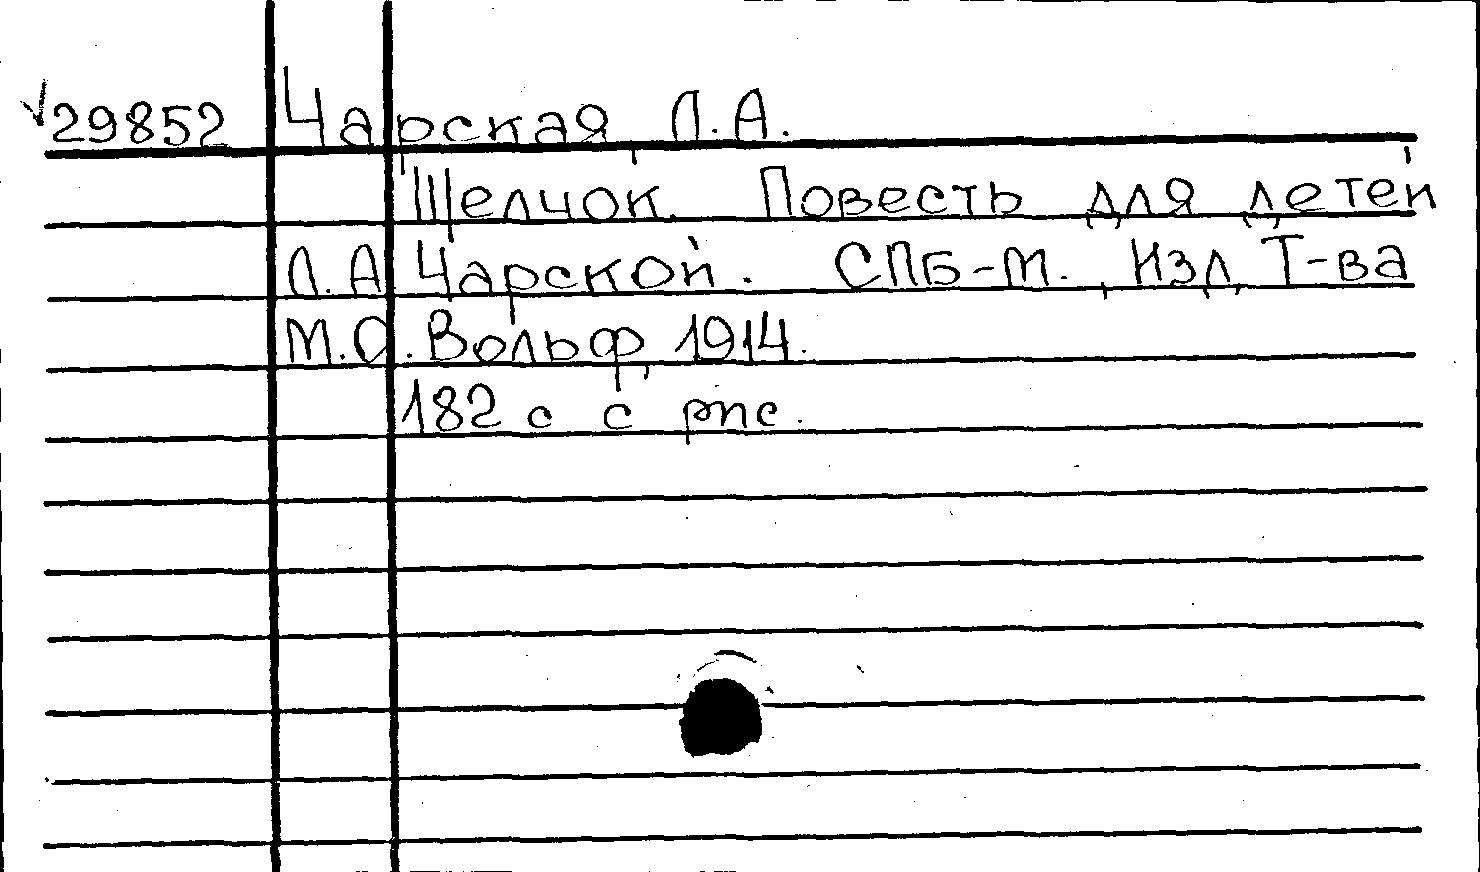 √29852 Чарская, Л.А.
Щелчок. Повесть для детей
Л.А. Чарской. СПБ-М., Изд. Т-ва
М.О. Вольф, 1914.
182 с с рис.